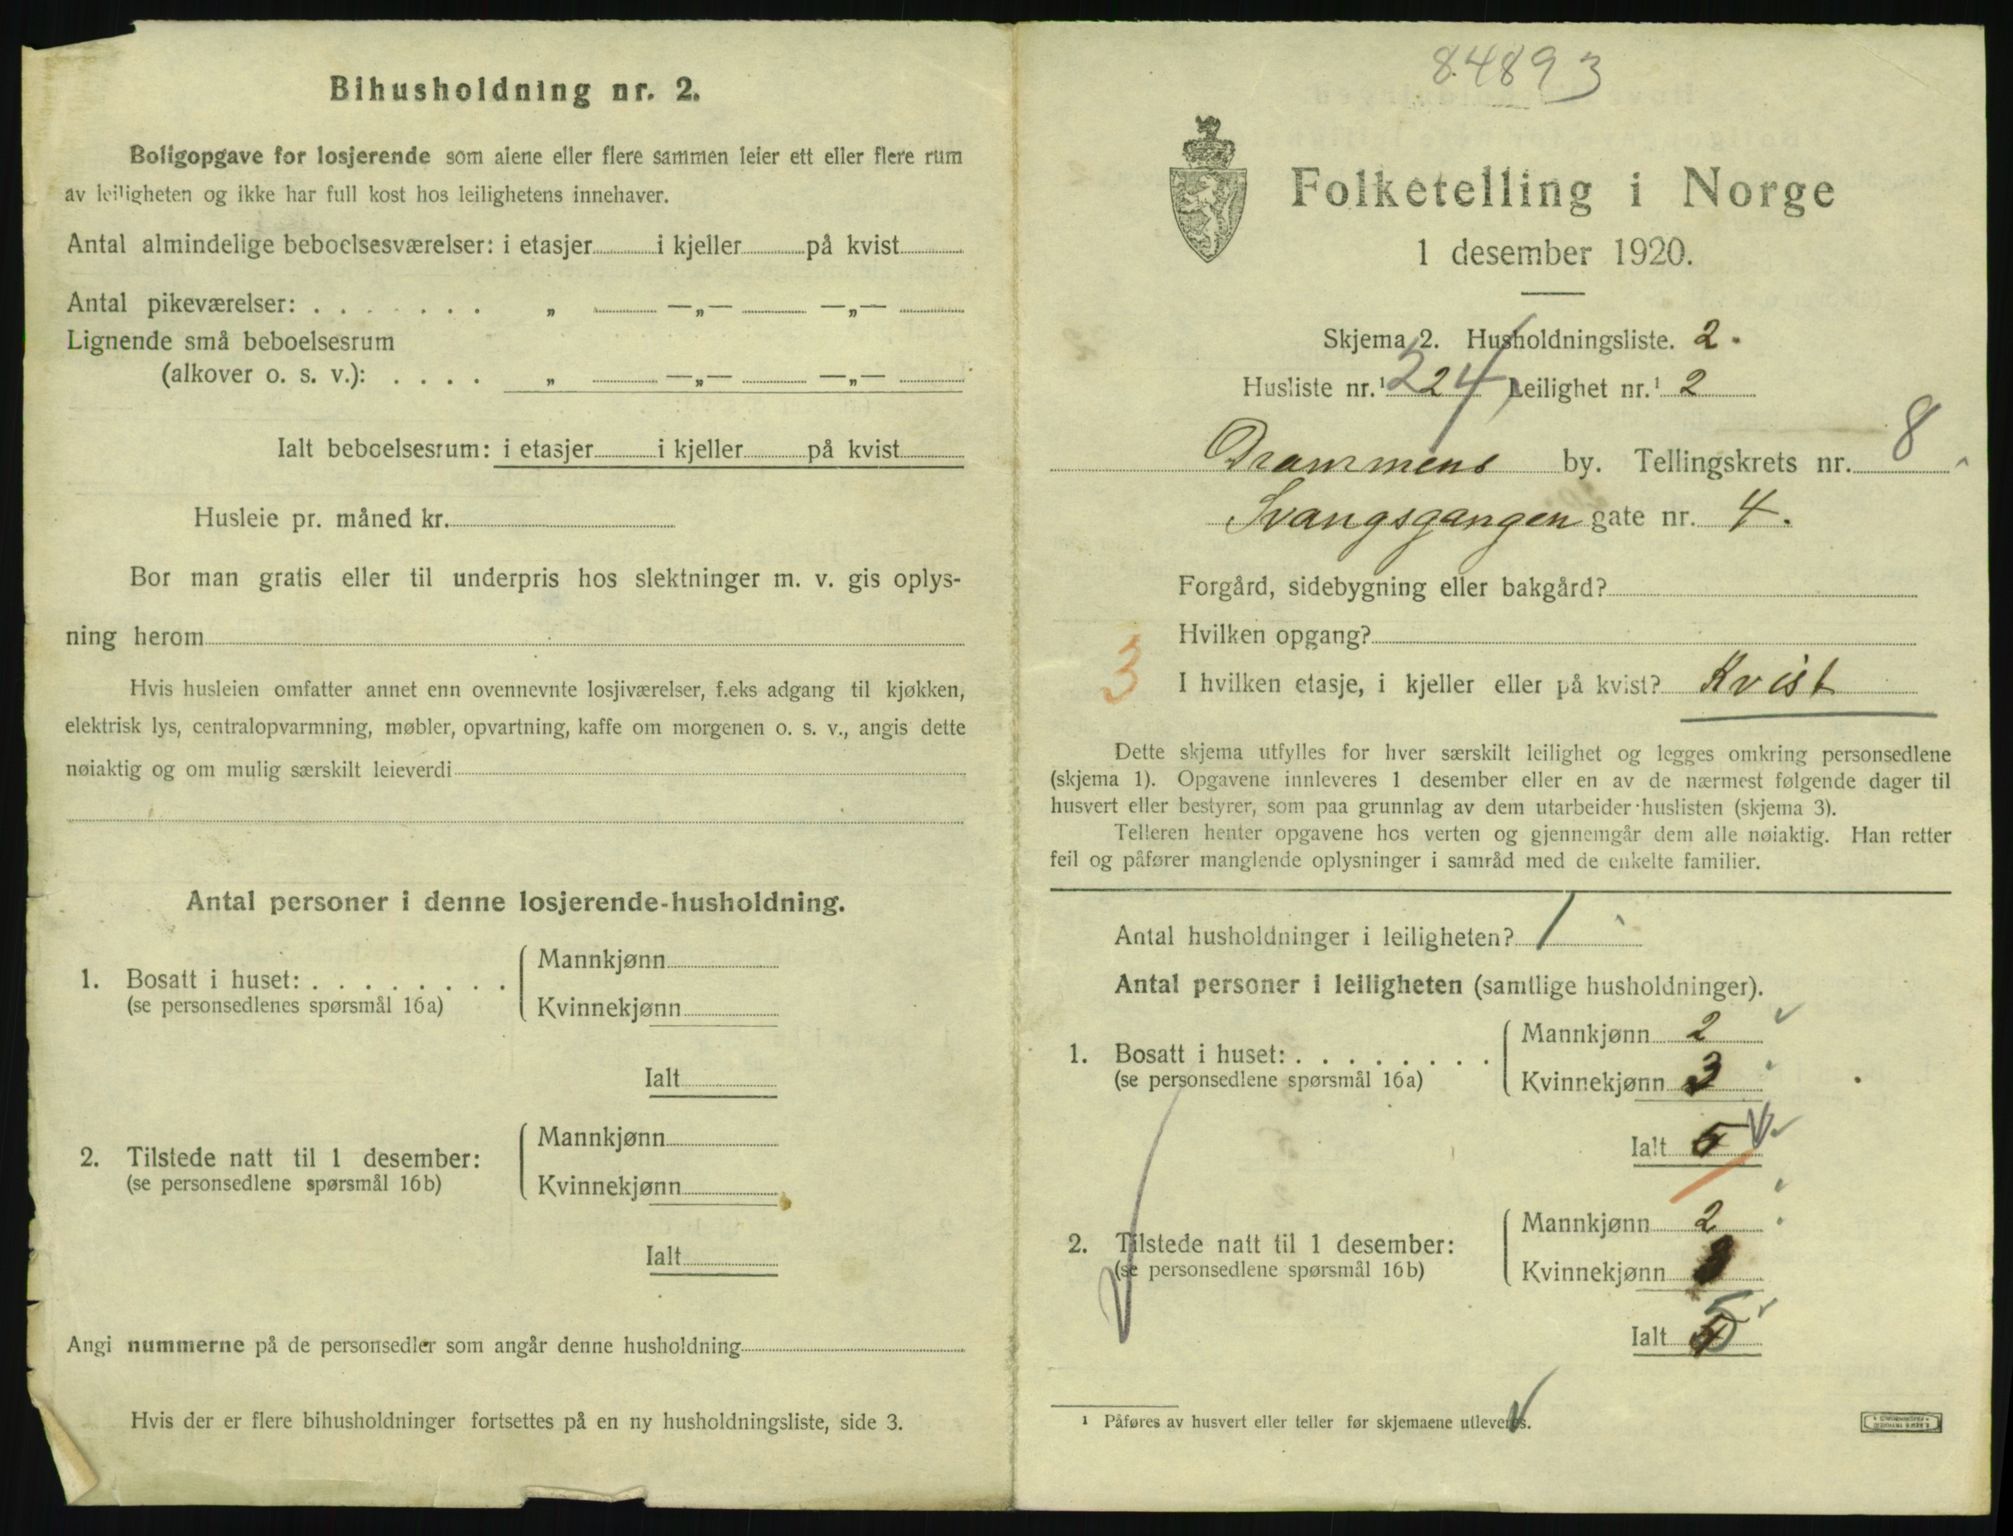 Bihusholdning nr. 2.
Boligopgave for losjerende som alene eller flere sammen leier ett eller flere rum
av leiligheten og ikke har full kost hos leilighetens innehaver.
Antal almindelige beboelsesværelser: i etasjer i kjeller på kvist
Antal pikeværelser: . . . . . . . „ —„— —„—
Lignende små beboelsesrum
(alkover o. s. v.): . . . . „ —„— —„—
Ialt beboelsesrum: i etasjer i kjeller på kvist
Husleie pr. måned kr.
Bor man gratis eller til underpris hos slektninger m. v. gis oplys-
ning herom
Hvis husleien omfatter annet enn ovennevnte losjiværelser, f.eks adgang til kjøkken,
elektrisk lys, centralopvarmning, møbler, opvartning, kaffe om morgenen o. s. v., angis dette
nøiaktig og om mulig særskilt leieverdi
Antal personer i denne losjerende-husholdning.
1. Bosatt i huset: . . . . . . . .
(se personsedlenes spørsmål 16a)
Mannkjønn
Kvinnekjønn
Ialt
2. Tilstede natt til 1 desember:
(se personsedlene spørsmål 16b)
Mannkjønn
Kvinnekjønn
Ialt
Angi nummerne på de personsedler som angår denne husholdning
Hvis der er flere bihusholdninger fortsettes på en ny husholdningsliste, side 3.
84893
Folketelling i Norge
1 desember 1920.
Skjema 2. Husholdningsliste. 2.
Husliste nr.¹ 224 Leilighet nr.¹ 2
Drammens by. Tellingskrets nr. 8
Svangsgangen gate nr. 4.
Forgård, sidebygning eller bakgård?
Hvilken opgang?
3
I hvilken etasje, i kjeller eller på kvist? Kvist
Dette skjema utfylles for hver særskilt leilighet og legges omkring personsedlene
(skjema 1). Opgavene innleveres 1 desember eller en av de nærmest følgende dager til
husvert eller bestyrer, som paa grunnlag av dem utarbeider huslisten (skjema 3).
Telleren henter opgavene hos verten og gjennemgår dem alle nøiaktig. Han retter
feil og påfører manglende oplysninger i samråd med de enkelte familier.
Antal husholdninger i leiligheten? 1
Antal personer i leiligheten (samtlige husholdninger).
1. Bosatt i huset: . . . . . . . .
(se personsedlene spørsmål 16a)
Mannkjønn 2
Kvinnekjønn 3
Ialt 5
2. Tilstede natt til 1 desember:
(se personsedlene spørsmål 16b)
Mannkjønn 2
Kvinnekjønn
Ialt 5
¹ Påføres av husvert eller teller før skjemaene utleveres.